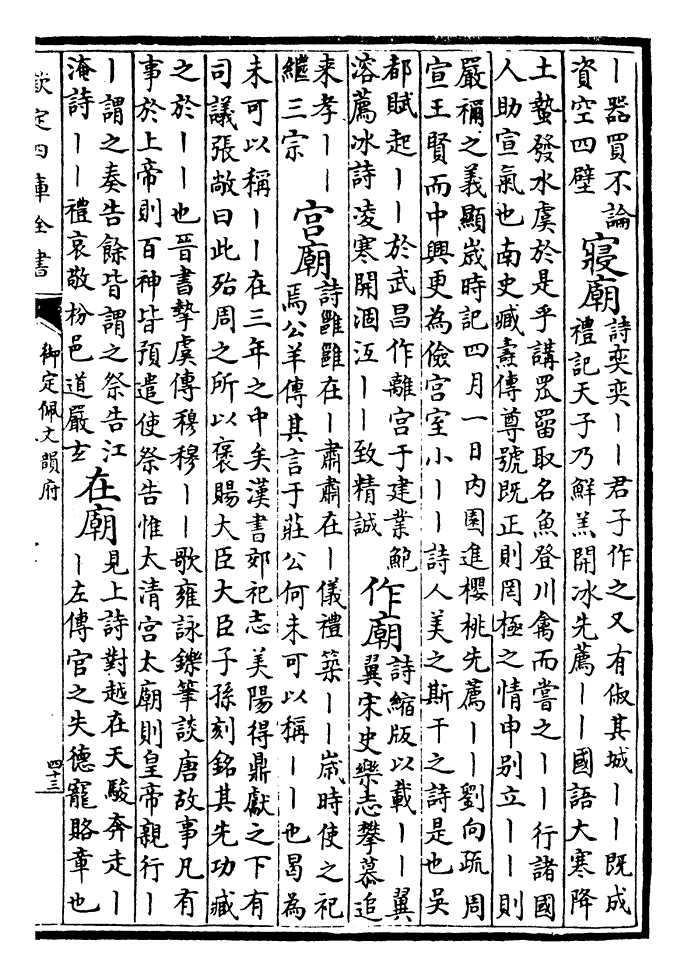 丨器買不論
資空四壁
寢廟
詩奕奕丨丨君子作之又有俶其城丨丨既成
禮記天子乃鮮羔開冰先薦丨丨國語大寒降
土蟄發水虞於是乎講罛罶取名魚登川禽而嘗之丨丨行諸國
人助宣氣也南史臧燾傳尊號既正則罔極之情申别立丨丨則
嚴禰之義顯嵗時記四月一日内園進櫻桃先薦丨丨劉向疏周
宣王賢而中興更為儉宫室小丨丨詩人美之斯干之詩是也吳
都賦起丨丨於武昌作離宫于建業鮑
溶薦冰詩凌寒開涸沍丨丨致精誠
作廟
詩縮版以載丨丨翼
翼宋史樂志攀慕追
来孝丨丨
繼三宗
宫廟
詩雝雝在丨肅肅在丨儀禮築丨丨嵗時使之祀
焉公羊傳其言于莊公何未可以稱丨丨也曷為
未可以稱丨丨在三年之中矣漢書郊祀志美陽得鼎獻之下有
司議張敞曰此殆周之所以褒賜大臣大臣子孫刻銘其先功臧
之於丨丨也晉書摯虞傳穆穆丨丨歌雍詠鑠筆談唐故事凡有
事於上帝則百神皆預遣使祭告惟太清宫太廟則皇帝親行丨
丨謂之奏告餘皆謂之祭告江
淹詩丨丨禮哀敬枌邑道嚴𤣥
在廟
見上詩對越在天駿奔走丨
丨左傳官之失德寵賂章也
欽定四庫全書
御定佩文韻府
四十三